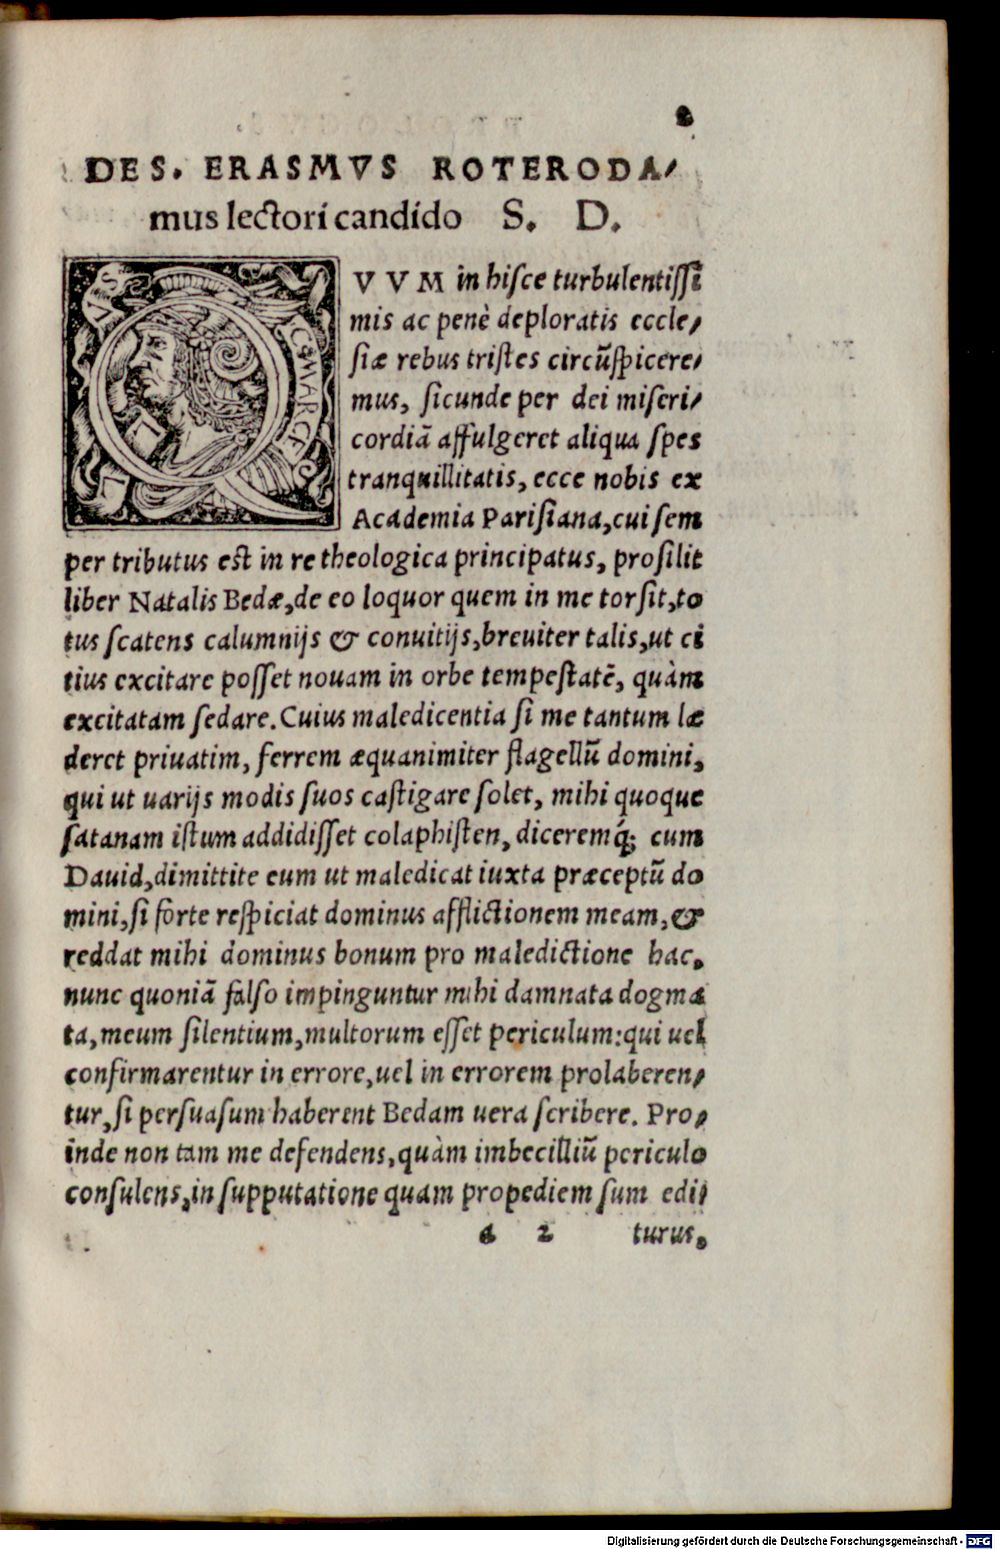 2
DES. ERASMVS ROTERODA/
mus lectori candido S. D.
QVVM in hisce turbulentissi
mis ac penè deploratis eccle/
siæ rebus tristes circũspicere/
mus, sicunde per dei miseri/
cordiã affulgeret aliqua spes
tranquillitatis, ecce nobis ex
Academia Parisiana, cui sem
per tributus est in re theologica principatus, prosilit
liber Natalis Bedæ, de eo loquor quem in me torsit, to
tus scatens calumnijs & conuitijs, breuiter talis, ut ci
tius excitare posset nouam in orbe tempestatẽ, quàm
excitatam sedare. Cuius maledicentia si me tantum læ
deret priuatim, ferrem æquanimiter flagellũ domini,
qui ut uarijs modis suos castigare solet, mihi quoque
satanam istum addidisset colaphisten, diceremq́; cum
Dauid, dimittite eum ut maledicat iuxta præceptũ do
mini, si forte respiciat dominus afflictionem meam, &
reddat mihi dominus bonum pro maledictione hac.
nunc quoniã falso impinguntur mihi damnata dogma
ta, meum silentium, multorum esset periculum: qui uel
confirmarentur in errore, uel in errorem prolaberen/
tur, si persuasum haberent Bedam uera scribere. Pro/
inde non tam me defendens, quàm imbecilliũ periculo
consulens, in supputatione quam propediem sum edi/
a 2 turus,
Digitalisierung gefördert durch die Deutsche Forschungsgemeinschaft - DFG